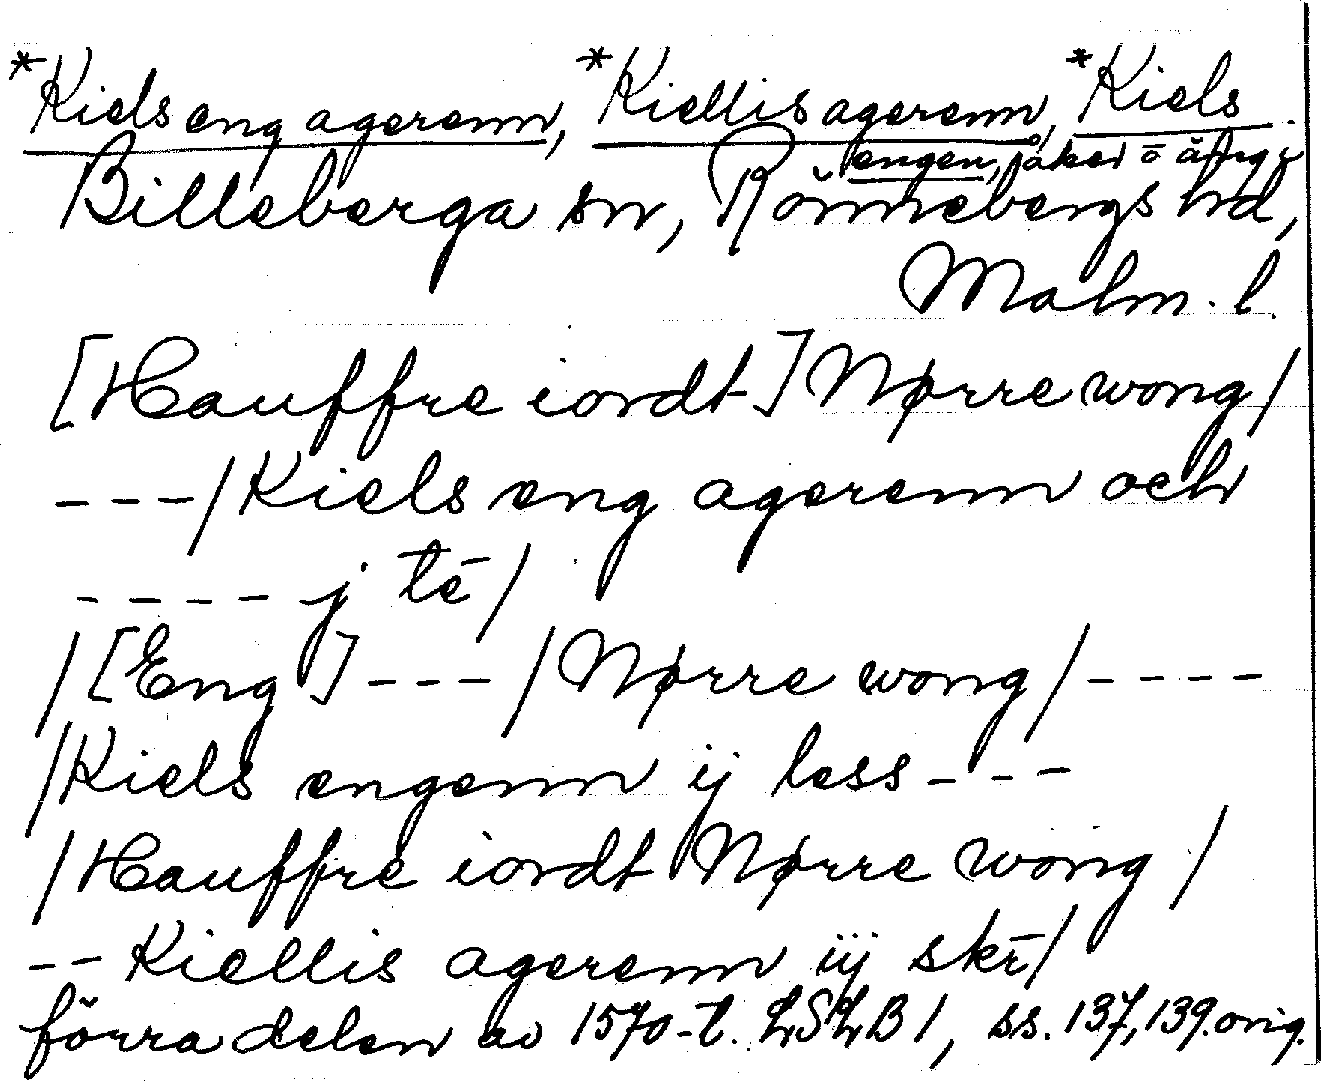 *Kiels eng agerenn, *Kiellis agerenn, *Kiels
engen, åker o äng,
Billeberga sn, Rönnebergs hd,
Malm. l.
[Hauffre iordt] Nørre wong/
---/Kiels eng agerenn och
---- j te/
/[Eng] ---/Nørre wong/----
/Kiels engenn ij less---
/Hauffre iordt Nørre wong/
--Kiellis agerenn iij skr/
förra delen av 1570-t. LSLB 1, ss. 137, 139. orig.